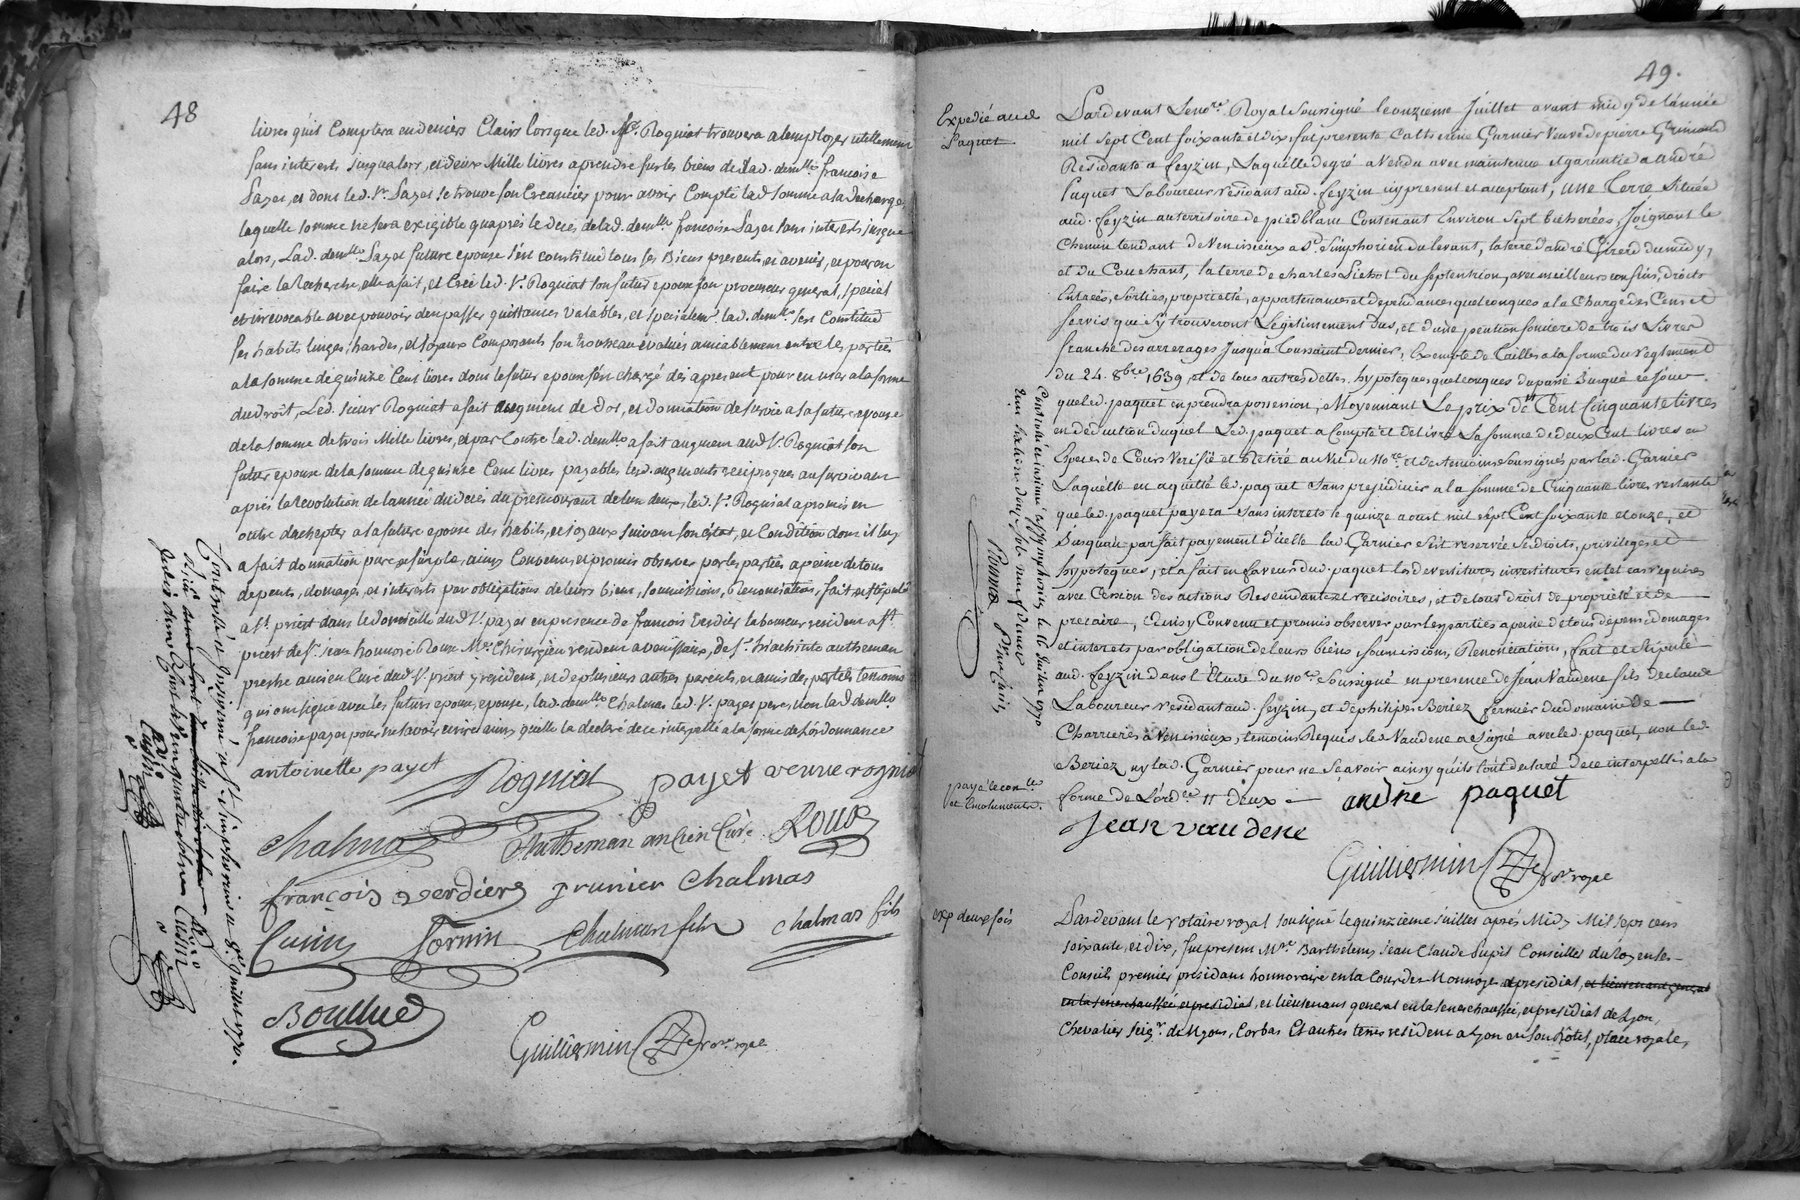 48
livres qu'il Comptera en deniers Clairs lorsque led. Sr. Rogniat trouvera a lemployer utillement
sans interest jusqualors, et deux Mille livres aprendre sur les biens de Lad. demlle francoise
Payet, et dont led. Sr. Payet se trouve son Creancier pour avoir Compté lad somme a la decharge
laquelle somme ne sera exigible quapres le deces de lad. demlle francoise Payet sans interests jusque
alors, Lad. demlle Payet future epouse s'est constitué tous ses Biens presents, et avenir, et pour en
faire la Recherche, elle a fait, et Créé led. Sr. Rogniat son futur epoux son procureur general, special
et irrevocable avec pouvoir den passer quittances valables, et specialemt lad. demlle s'est Constitué
ses habits linges, hardes, et joyaux Composants son trousseau évalués amiablement entre les parties
a la somme de quinze Cent livres dont le futur epoux s'est chargé des apresent pour en user a la forme
du droit, Led. sieur Rogniat a fait augment de dot, et donnation de survie a sa future epouse
de la somme de trois Mille livres, et par Contre lad. demlle a fait augment aud Sr. Rogniat son
futur epoux de la somme de quinze Cent livres payables lesd. augments reciproques au survivant
apres la Revolution de lannée du deces du premourant de lun deux, led. Sr. Rogniat a promis en
outre dachepter a la future epouse des habits, et joyaux suivant son état, et Condition dont il luy
a fait donnation pure et simple, ainsy Convenu, et promis observer par les parties a peine de tous
depents, domages, et interests par obligations de leurs biens, soumissions, Renonciations, fait et stipulé
a St. priest dans le domicille dud Sr. payet en presence de francois Verdier laboureur resident a St.
priest de Sr. jean honnoré Roux Me. Chirurgien resident a venissieux, de Sr. hiacinte autheman
prestre ancien Curé dud St. priest y resident, et de plusieurs autres parents, et amis des parties temoins
qui ont signé avec les futurs epoux, epouse, lad. demlle Chalmas led. Sr. payet pere, non lad demlle
francoise payet pour ne savoir ecrire ainsy quelle la declaré de ce interpellé a la forme de Lordonnance
antoinette payet
Rogniat
payet veuve rogniat
Chalmas
Autheman ancien Curé
Roux
françois verdier
prunier Chalmas
Cusin
Fornin
Chalmas fils
chalmas fils
Boullud
Guilliermin Nore royal
49.
Expedié aud
Paquet
Pardevant Le nore. Royal Soussigné le onzieme Juillet avant midy de l'année
mil sept Cent soixante et dix, fut presente Catherine Garnier Veuve de pierre Grimaud
Residante a feyzin, Laquelle de gré a Vendu avec maintenue et garantie a andré
Paquet Laboureur residant aud. feyzin icy present et acceptant, une Terre Située
aud. feyzin au territoire de piedblanc Contenant Environ Sept bicherées, Joignant le
Chemin tendant de Venissieux a St. Simphorien du levant, la terre d'andré Girerd du midy,
et du Couchant, la terre de charles Lichot du septentrion, avec meilleurs confins, droits
Entrées, sorties, proprieté, appartenances et dependances quelconques a la Charge des Cens et
servis que s'y trouveront Légitimement dus, et d'une pention fonciere de trois Livres
franche des arrerages Jusqu'a Toussaint dernier, Exempte de Tailles a la forme du reglement
du 24. 8bre 1639, et de tous autres dettes, hypoteques quelconques du passé Jusqua ce jour
que led. paquet en prendra possession, Moyennant Le prix de Cent Cinquante livres
en deduction duquel Led. paquet a Compté et delivré La somme de deux Cent livres en
Especes de Cours verifié et Retiré au Vu du nore. et des temoins Soussignés par lad. Garnier
Laquelle en a quitté led. paquet Sans prejudicier a la somme de Cinquante livres restante
que led. paquet payera sans interets le quinze aoust mil sept Cent soixante et onze, et
Jusquau parfait payement d'icelle lad Garnier s'est reservée ses droits, privileges et
hypoteques, et a fait en faveur dud. paquet les devestitures investitures en tel cas requises
avec Cession des actions Rescindantes et rescisoires, et de tout droit de proprieté et de
precaire, Ainsy Convenu et promis observer par les parties a peine de tous depens domages
et interets par obligation de leurs biens, soumissions, Renonciations, fait et stipulé
aud. feyzin dans l'Etude du nore. Soussigné en presence de Jean Vaudene fils de claude
Laboureur residant aud. feyzin, et de philipe Beriez fermier du domaine de
Charrieres a Venissieux, temoins Requis led. Vaudene a signé avec led. paquet, non led
Beriez ny lad. Garnier pour ne Sçavoir ainsy quils l'ont declaré de ce interpellés a la
forme de L'ordce 11 deux
andré paquet
jean vaudene
Guilliermin Nore royal
payé le conlle
et Emoluments.
Controllé et insinué a St Symphorien le 16 Juillet 1770
Prunier
exp deux fois
Pardevant le notaire royal soussigné le quinzieme Juillet après Midy Mil sept cent
soixante, et dix, fut present Mre. Barthelemy Jean Claude Pupil Conseiller du roy en ses
Conseils premier president honnoraire en la Cour des Monnoyes et presidial, et lieutenant general
en la senechaussée, et presidial, et lieutenant general en la senechaussée, et presidial de Lyon,
Chevalier Seigr. de Myons, Corbas Et autres terres resident a Lyon en son hôtel, place royale,